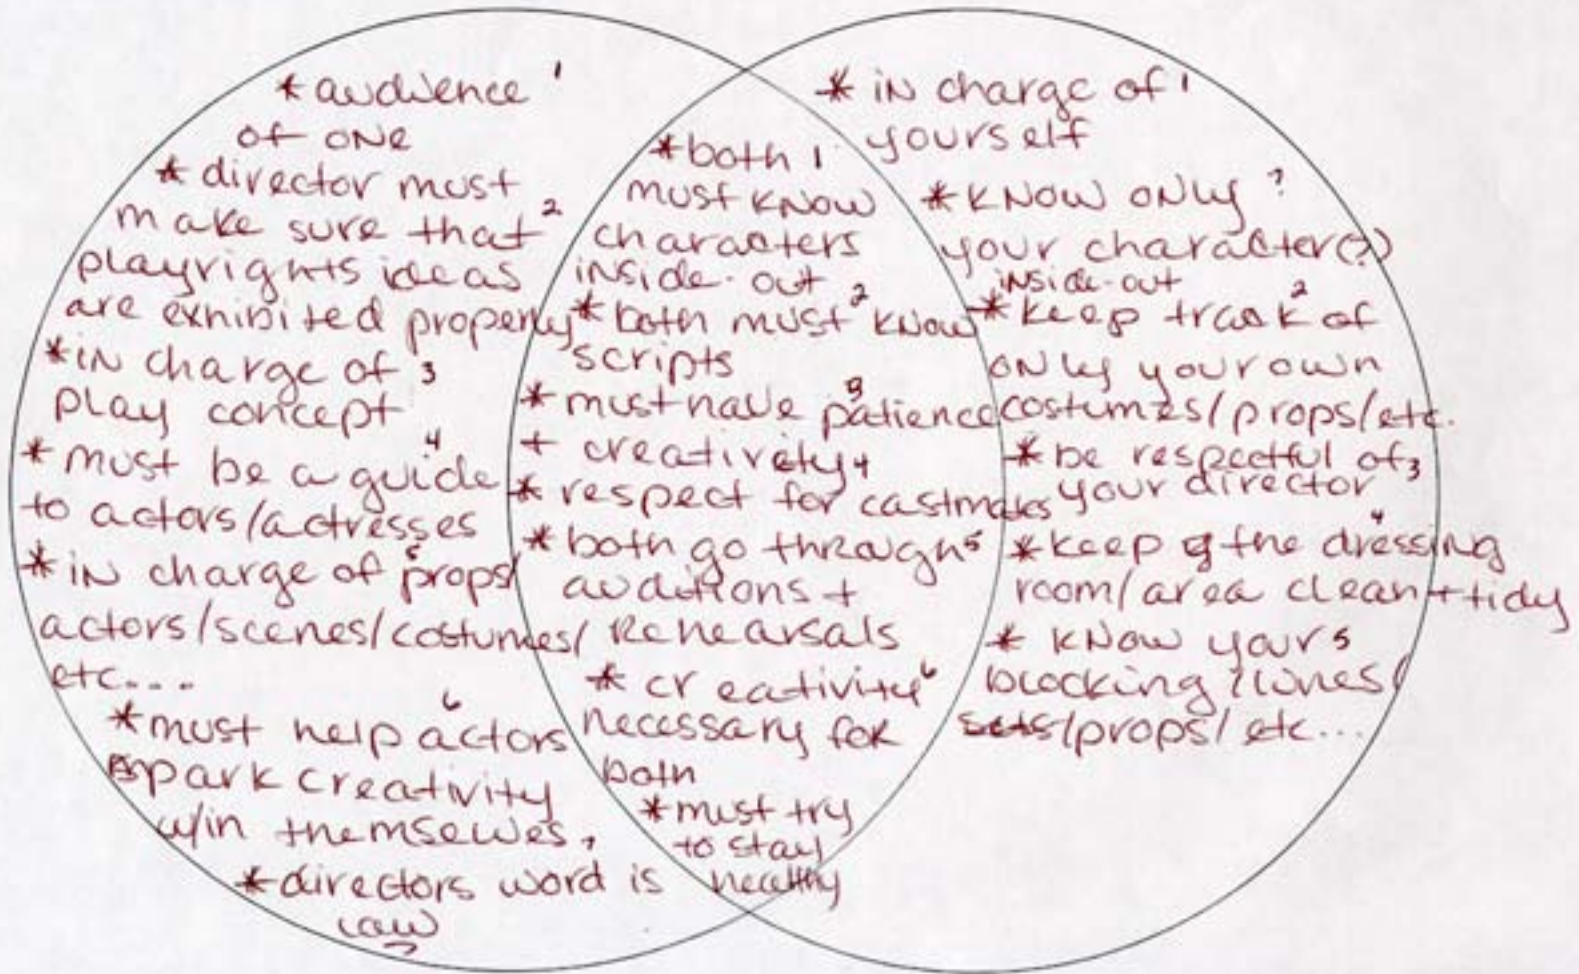 * audience 1
of one
* director must
make sure that 2
playrights ideas
are exhibited properly
* in charge of 3
play concept
* must be a guide 4
to actors/actresses
* in charge of props/ 5
actors/scenes/costumes/
etc...
* must help actors 6
spark creativity
w/in themselves,
* directors word is
law 7
* both 1
must know
characters
inside-out
* both must 2 know
scripts
* must have patience 3
+ creativety 4
* respect for castmates
* both go through 5
auditions +
Rehearsals
* creativity 6
necessary for
both
* must try
to stay
healthy
* in charge of 1
yourself
* know only ?
your character(?)
inside-out
* keep track of 2
only your own
costumes/props/etc.
* be respectful of 3
your director
* keep the dressing 4
room/area clean + tidy
* know your 5
blocking/lines/
sets/props/etc...